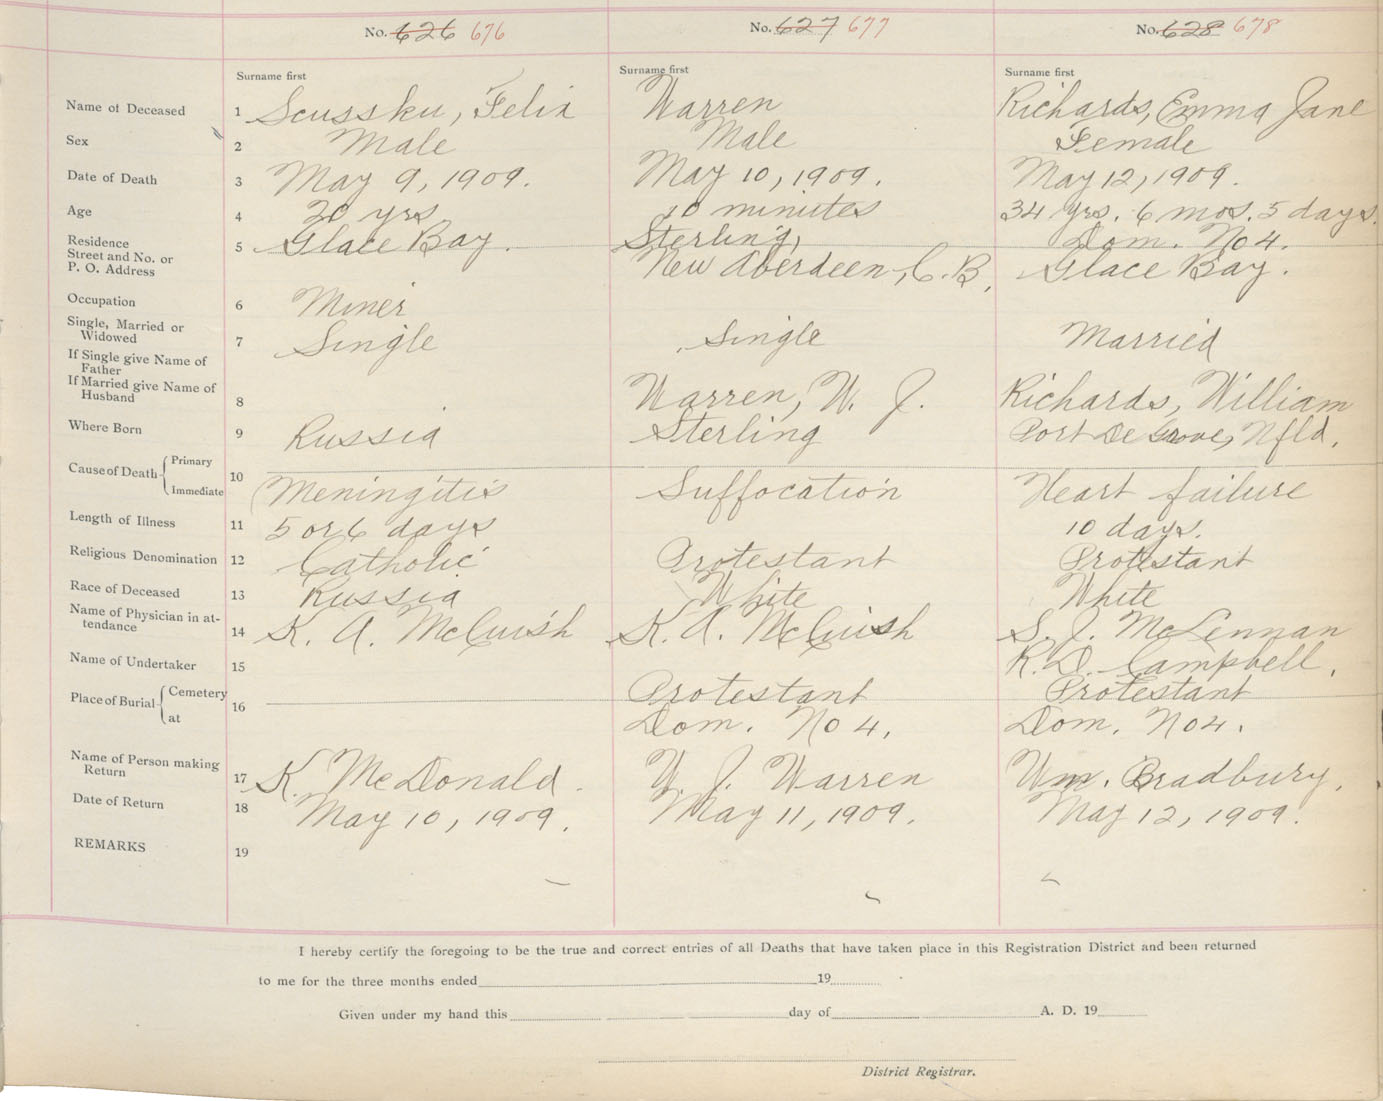 No. 626 676 No. 627 677 No. 628 678
Surname first Surname first Surname first
Name of Deceased 1 Scussku, Felix Warren Richards, Emma Jane
Sex 2 Male Male Female
Date of Death 3 May 9, 1909. May 10, 1909. May 12, 1909.
Age 4 20 yrs 10 minutes 34 yrs. 6 mos. 5 days.
Residence Street and No. or P. O. Address 5 Glace Bay. Sterling, Dom. No 4.
New Aberdeen, C. B. Glace Bay.
Occupation 6 Miner
Single, Married or Widowed 7 Single Single Married
If Single give Name of Father
If Married give Name of Husband 8 Warren, W. J. Richards, William
Where Born 9 Russia Sterling Port De Grove, Nfld.
Cause of Death Primary Immediate 10 Meningitis Suffocation Heart failure
Length of Illness 11 5 or 6 days 10 days.
Religious Denomination 12 Catholic Protestant Protestant
Race of Deceased 13 Russia White White
Name of Physician in attendance 14 K. A. McCuish K. A. McCuish S. J. McLennan
Name of Undertaker 15 R. D. Campbell.
Place of Burial Cemetery at 16 Protestant Protestant
Dom. No 4. Dom. No 4.
Name of Person making Return 17 K. McDonald. W. J. Warren Wm. Bradbury.
Date of Return 18 May 10, 1909. May 11, 1909. May 12, 1909.
REMARKS 19
I hereby certify the foregoing to be the true and correct entries of all Deaths that have taken place in this Registration District and been returned
to me for the three months ended 19
Given under my hand this day of A. D. 19
District Registrar.